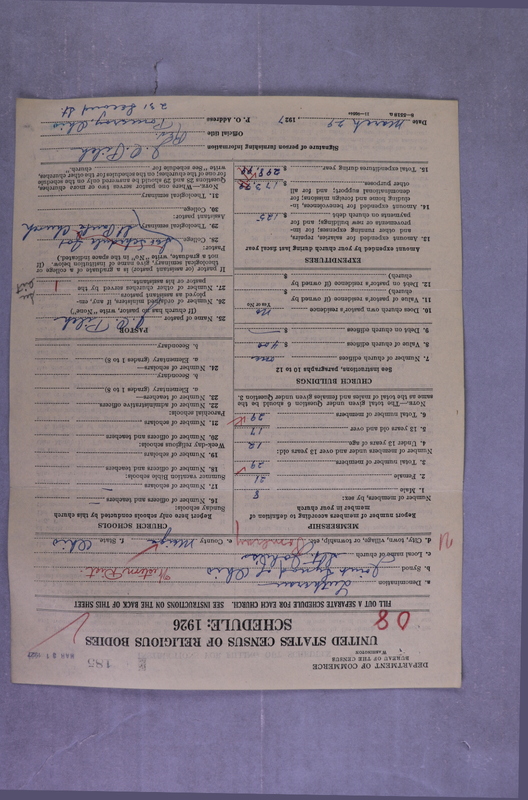 DEPARTMENT OF COMMERCE
BUREAU OF THE CENSUS
WASHINGTON
185
MAR 31 1927
UNITED STATES CENSUS OF RELIGIOUS BODIES
SCHEDULE: 1926
80
FILL OUT A SEPARATE SCHEDULE FOR EACH CHURCH. SEE INSTRUCTIONS ON THE BACK OF THIS SHEET
a. Denomination Lutheran
b. Synod Joint Synod of Ohio Western Dist.
c. Local name of church St.
d. City, town, village, or township, etc. Pomeroy e. County Meigs f. State Ohio
MEMBERSHIP
Report number of members according to definition of member in your church
Number of members, by sex:
1. Male 8
2. Female 21
3. Total number of members 29
Number of members under 13 years and over 13 years old:
4. Under 13 years of age 12
5. 13 years old and over 17
6. Total number of members 29
NOTE.—The total given under Question 6 should be the same as the total of males and females given under Question 3.
CHURCH BUILDINGS
See Instructions, paragraphs 10 to 12
7. Number of church edifices one
8. Value of church edifices $ 400
9. Debt on church edifices $
10. Does church own pastor's residence no
Yes or No
11. Value of pastor's residence (if owned by church) $
12. Debt on pastor's residence (if owned by church) $
EXPENDITURES
Amount expended by your church during last fiscal year
13. Amount expended for salaries, repairs, and other running expenses; for improvements or new buildings; and for payments on church debt $ 125
14. Amount expended for benevolences, including home and foreign missions; for denominational support; and for all other purposes $
15. Total expenditures during year $
CHURCH SCHOOLS
Report here only schools conducted by this church
Sunday schools:
16. Number of officers and teachers
17. Number of scholars
Summer vacation Bible schools:
18. Number of officers and teachers
19. Number of scholars
Week-day religious schools:
20. Number of officers and teachers
21. Number of scholars
Parochial schools:
22. Number of administrative officers
23. Number of teachers—
a. Elementary (grades 1 to 8)
b. Secondary
24. Number of scholars—
a. Elementary (grades 1 to 8)
b. Secondary
PASTOR
25. Name of pastor J. C. Pilch
(If church has no pastor, write "None")
26. Number of ordained ministers, if any, employed as assistant pastors
27. Number of other churches served by the pastor or his assistants 1
If pastor (or assistant pastor) is a graduate of a college or theological seminary, give name of institution below. (If not a graduate, write "No" in space indicated.)
Pastor:
28. College See schedule for
29. Theological seminary St Paul's Church
Assistant pastor:
30. College
31. Theological seminary
NOTE.—Where one pastor serves two or more churches, Questions 28 and 29 should be answered only on the schedule for one of the churches; on the schedules for the other churches, write "See schedule for church."
Signature of person furnishing information J. C. Pilch
Official title Rev.
Date March 29, 1927. P. O. Address Pomeroy, Ohio
231 Second St.